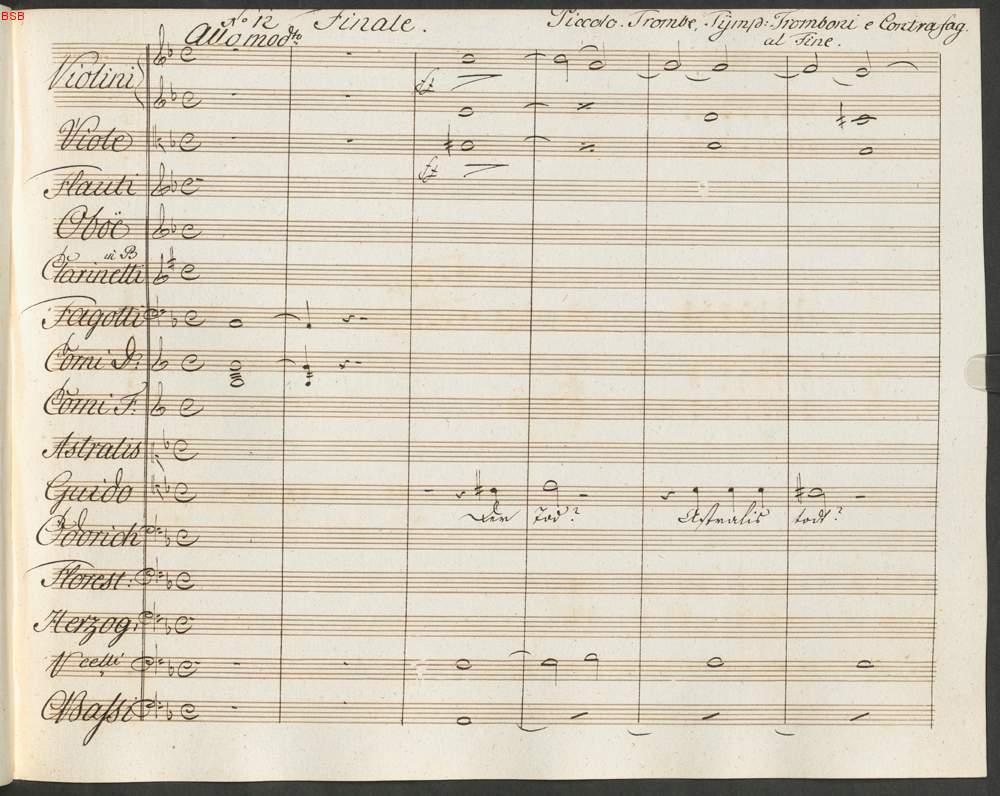 BSB
No 12 Finale. Piccolo. Trombe, Tÿmp: Tromboni e Contrafag.
Allo modto al Fine.
Violini
fz
Viole
fz
Flauti
Oboë
in B
Clarinetti
Fagotti
Corni D:
Corni F:
Astralis
Guido
Der Tod? Astralis todt?
Odorich
Florest:
Herzog:
Vcelli
CBassi